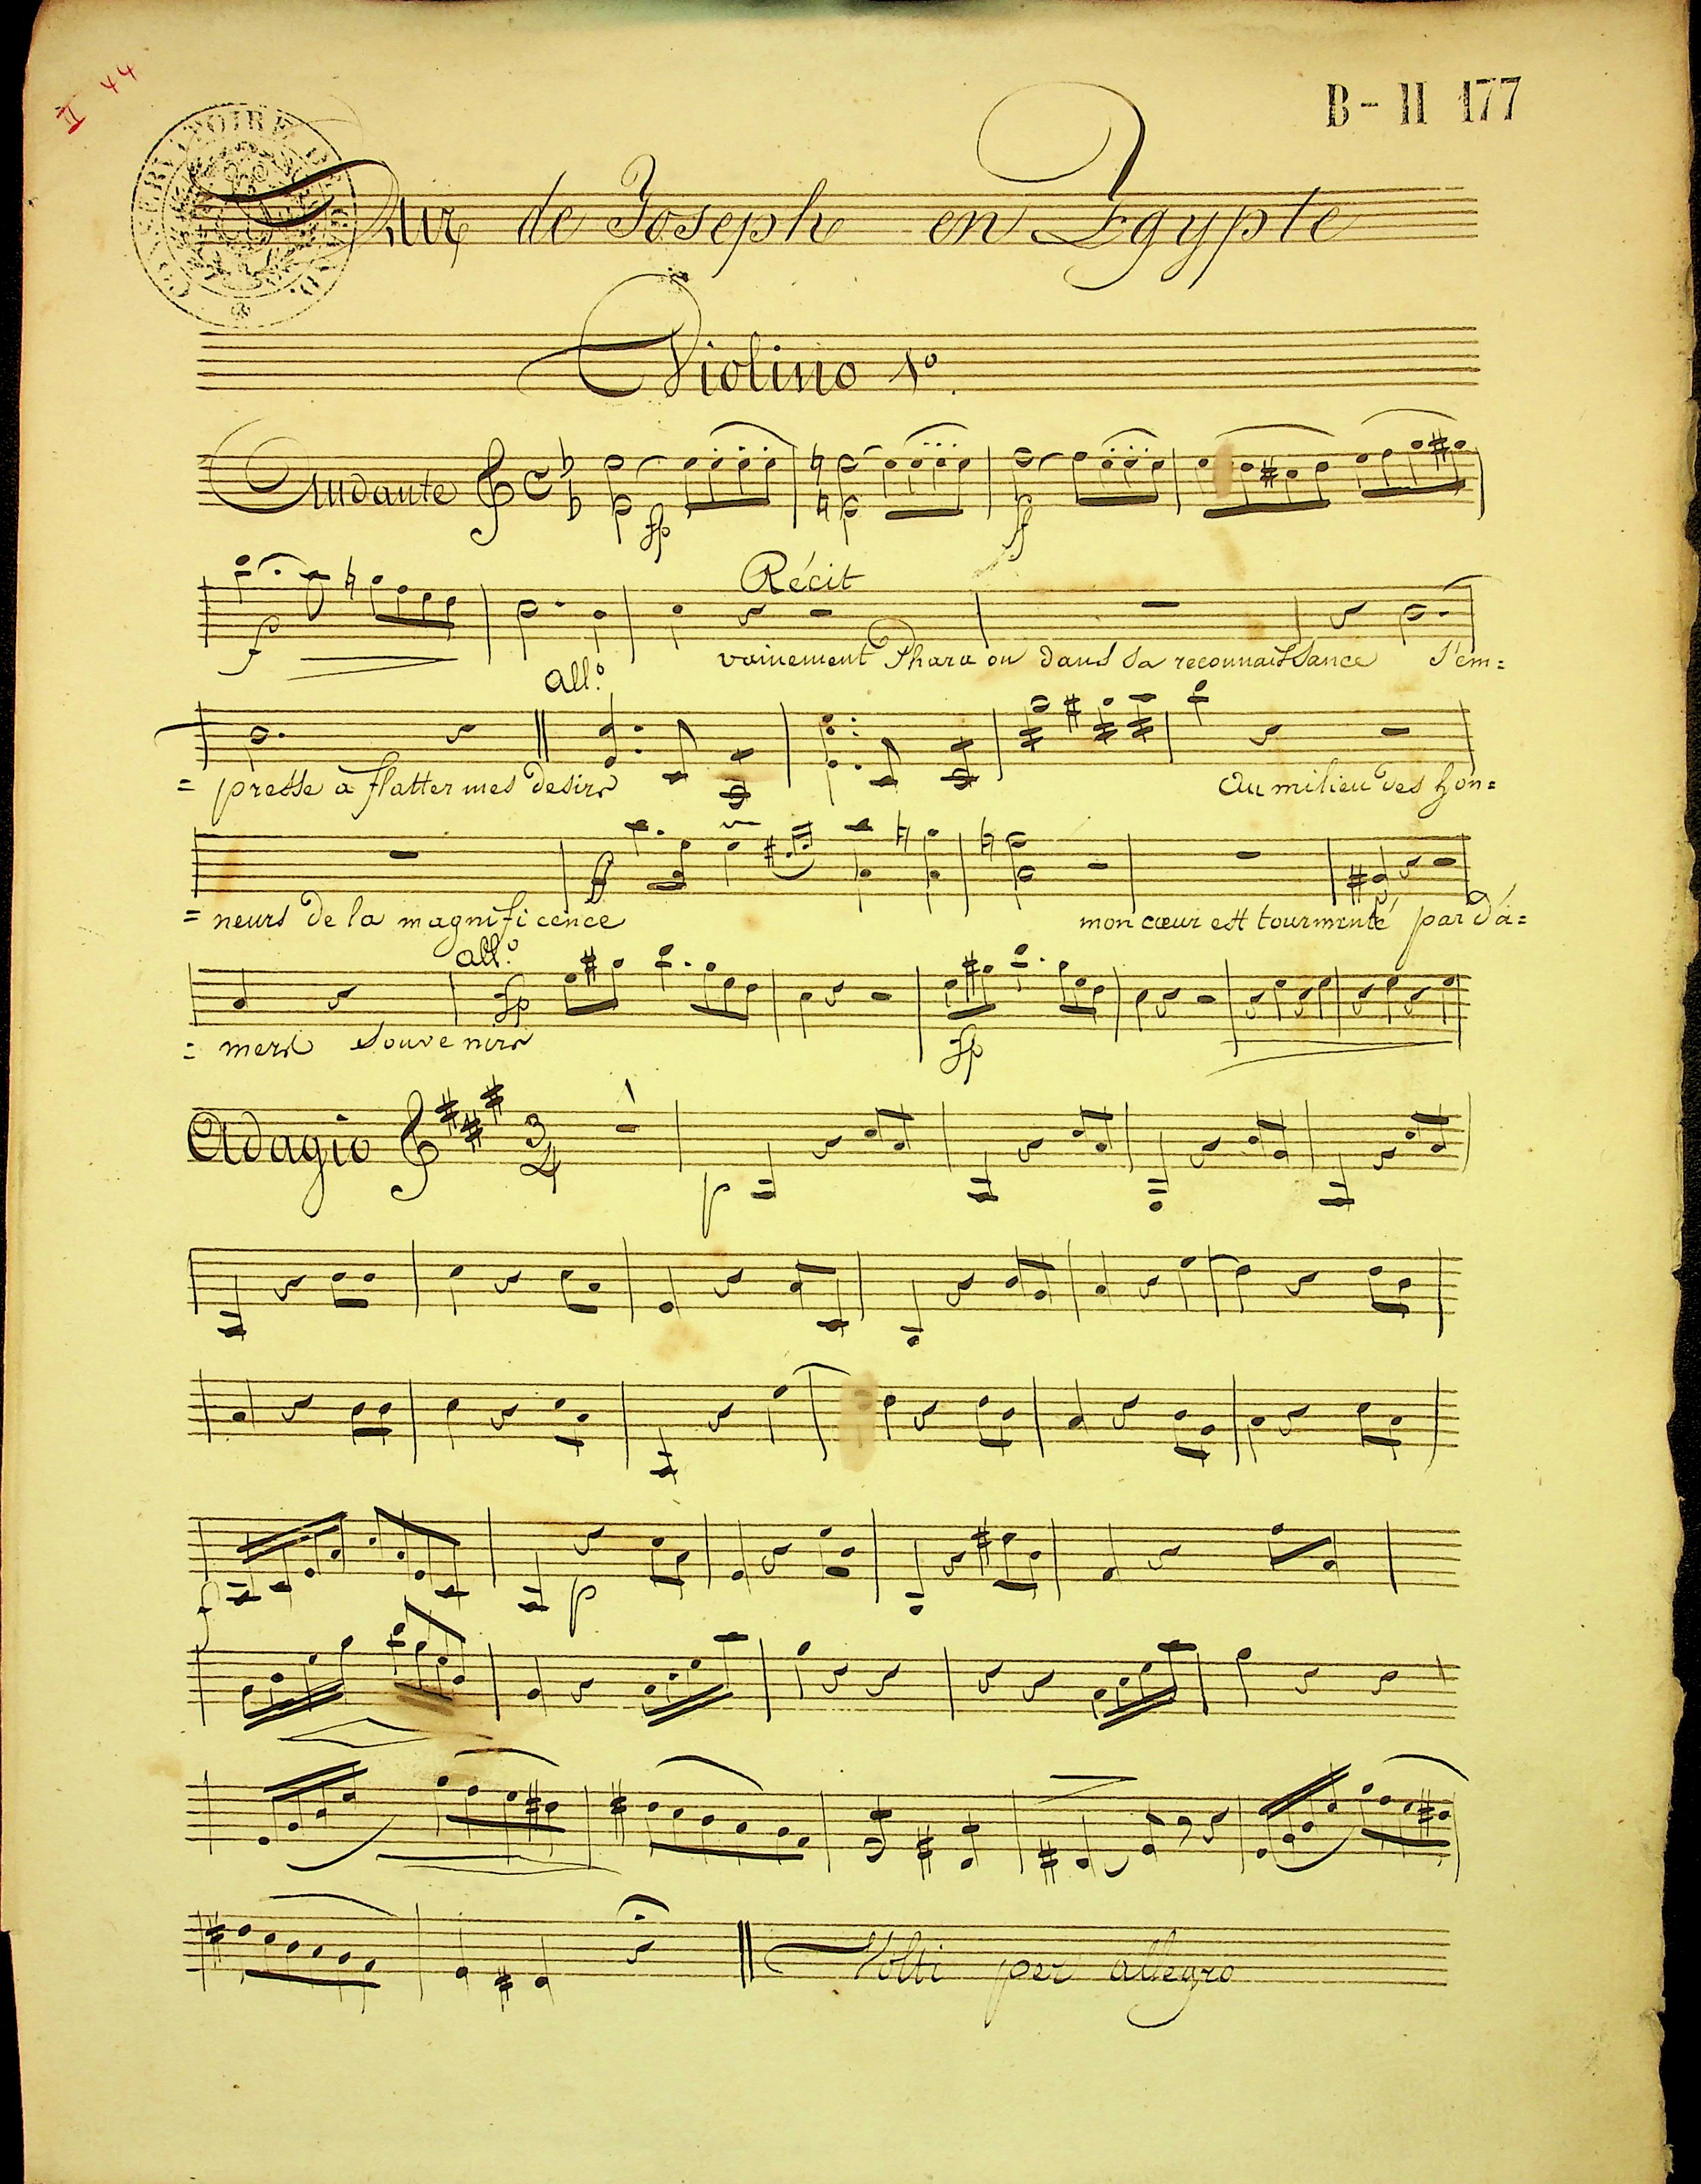 II 44
B - II 177
CONSERVATOIRE
Air de Joseph en Egypte
Violino 1º.
Andante
fp ff
Récit
f
vainement Pharaon dans sa reconnaissance S'em=
all.º
= presse à flatter mes desirs Au milieu des hon=
ff
= neurs de la magnificence mon cœur est tourmenté par d'a=
all.º
fp fp
= mers Souvenirs
Adagio 3/4 1
p
f p
Volti per allegro